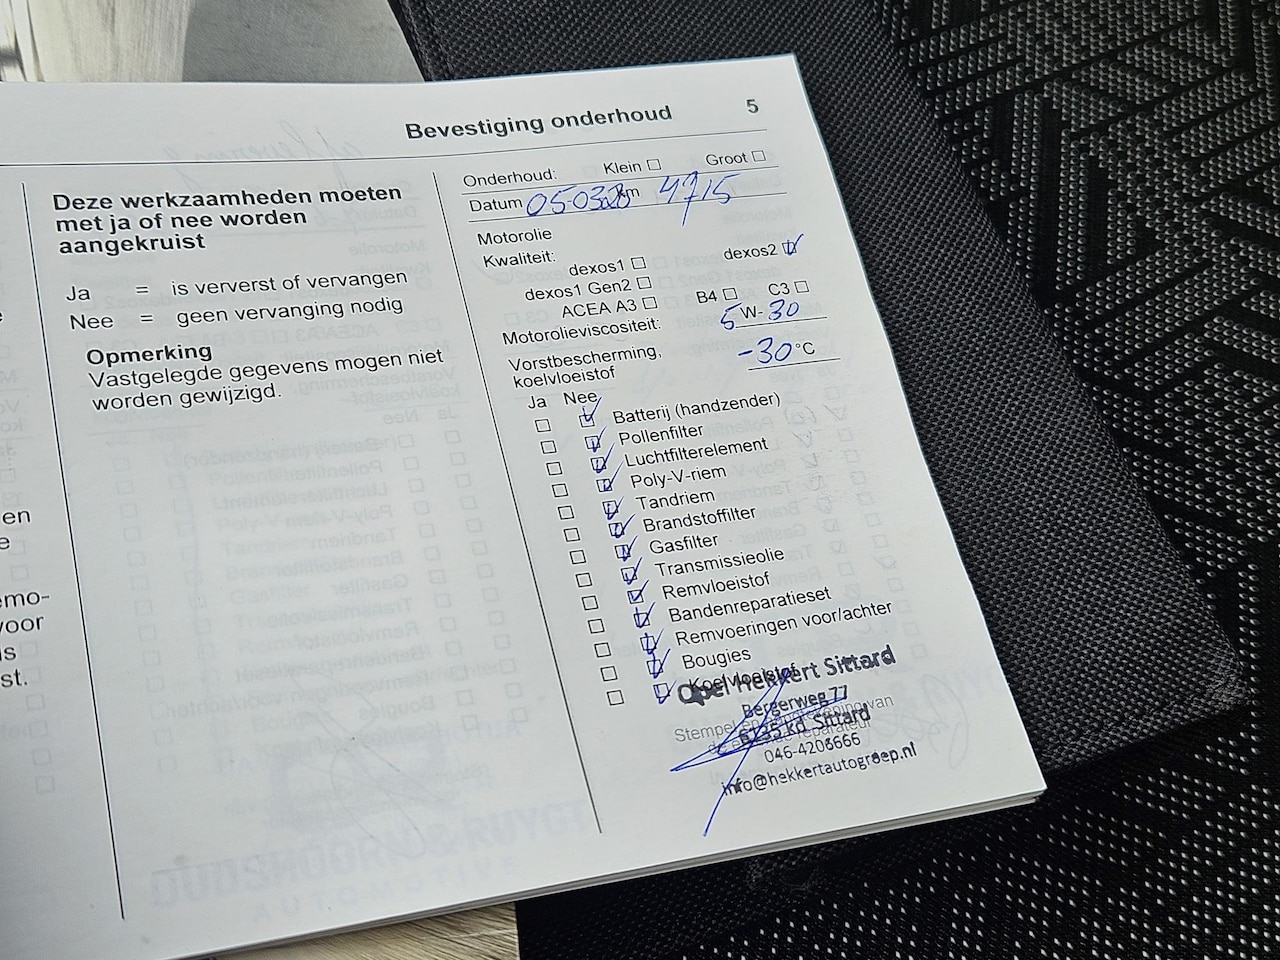 Bevestiging onderhoud 5
en
e
emo-
voor
ls
st.
Deze werkzaamheden moeten
met ja of nee worden
aangekruist
Ja = is ververst of vervangen
Nee = geen vervanging nodig
Opmerking
Vastgelegde gegevens mogen niet
worden gewijzigd.
Onderhoud: Klein ☐ Groot ☐
Datum km 4715
Motorolie
Kwaliteit:
dexos1 ☐ dexos2 ☑
dexos1 Gen2 ☐
ACEA A3 ☐ B4 ☐ C3 ☐
Motorolieviscositeit: 5 W- 30
Vorstbescherming,
koelvloeistof -30 °C
Ja Nee
☐ ☑ Batterij (handzender)
☐ ☑ Pollenfilter
☐ ☑ Luchtfilterelement
☐ ☑ Poly-V-riem
☐ ☑ Tandriem
☐ ☑ Brandstoffilter
☐ ☑ Gasfilter
☐ ☑ Transmissieolie
☐ ☑ Remvloeistof
☐ ☑ Bandenreparatieset
☐ ☑ Remvoeringen voor/achter
☐ ☑ Bougies
☐ ☑ Koelvloeistof
Opel Hekkert Sittard
Bergerweg 77
Stempel van
Sittard
046-4208666
info@hekkertautogroep.nl